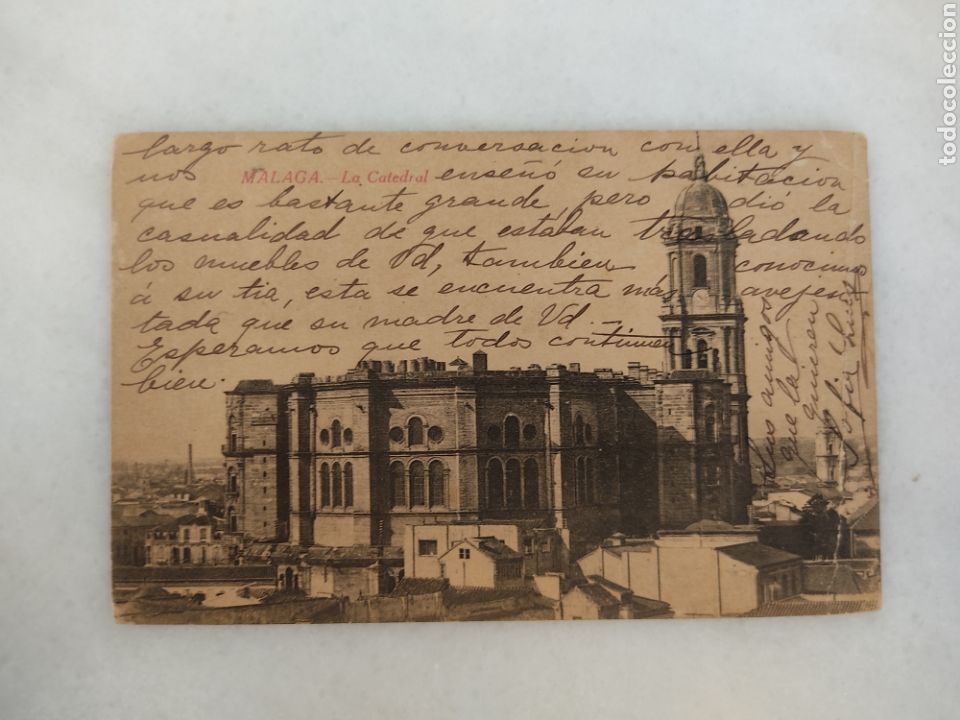 largo rato de conversacion con ella y
nos enseñó su habitacion
MALAGA.- La Catedral
que es bastante grande, pero dió la
casualidad de que estaban trasladando
los muebles de Vd, tambien conocimos
á su tia, esta se encuentra más avejen
tada que su madre de Vd.-
Esperamos que todos continuen
bien.
Sus amigos
que la
quieren
todocoleccion